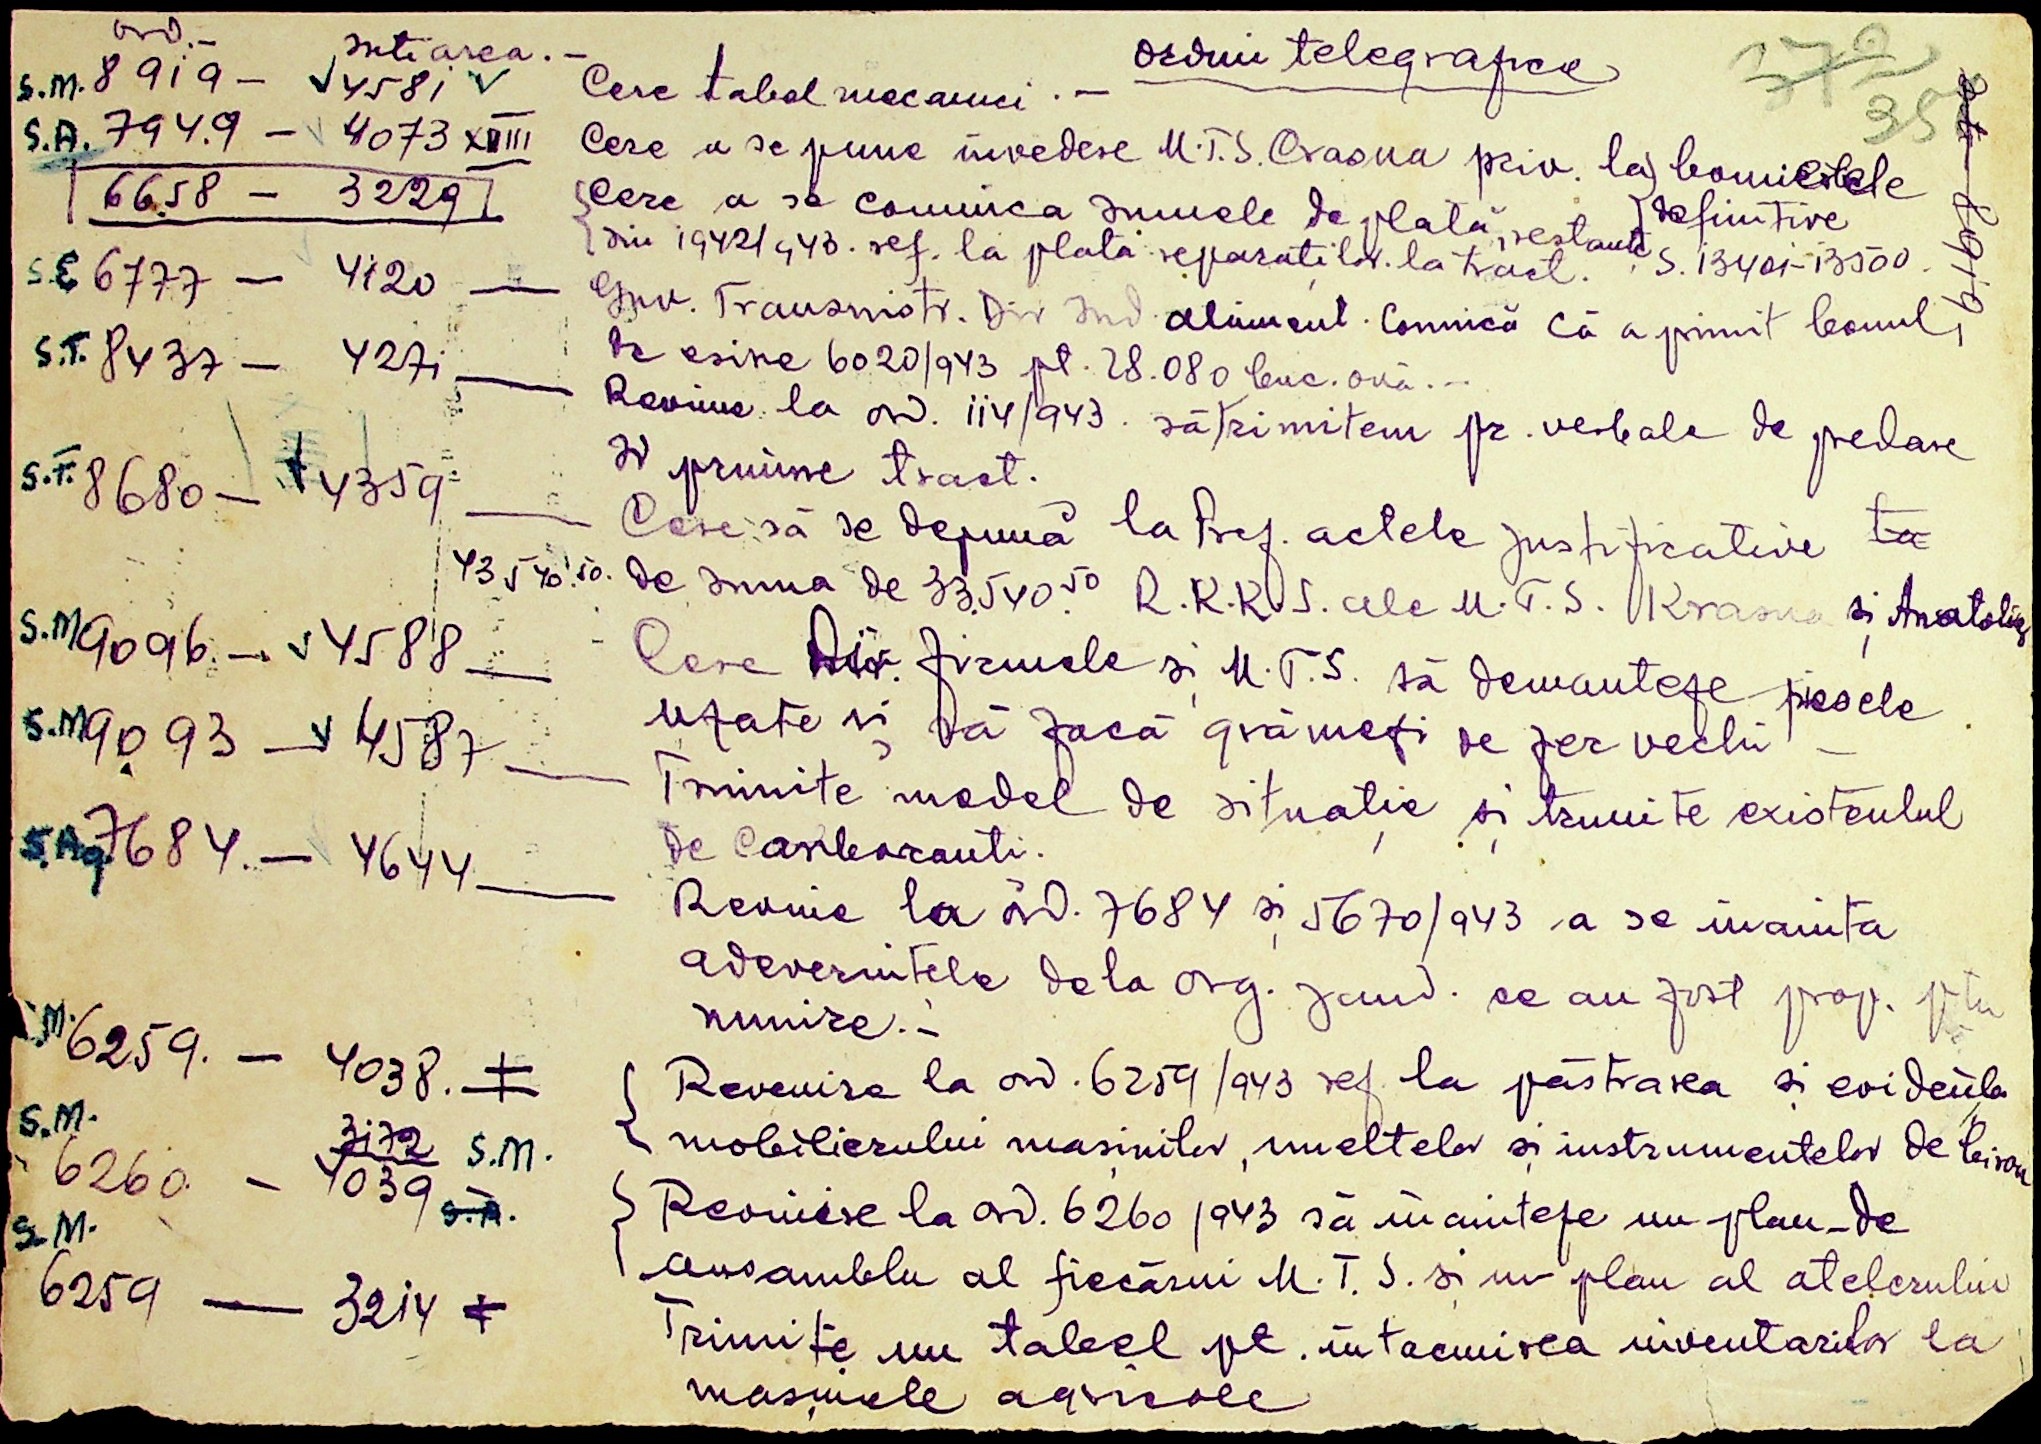 ord.- intiarea.-
ordin telegrafice
372
35
S.M. 8919 - 4581 Cere tabel mecanici.-
S.A. 7949 - 4073 XVIII Cere a se pune in vedere M.T.S. Crasna priv. la bonurile
6658 - 3229 Cere a se comunica sumele de plată, restante definitive
din 1942/943. ref. la plata reparatiilor. la tract. S. 13401-13500.
S.E 6777 - 4120 — Guv. Transnistr. Dir Ind. aliment. Comnică că a primit bonul
de esire 6020/943 pt. 28.080 buc. ouă.-
S.T. 8437 - 4271 — Revine la ord. 114/943. să trimitem pr. verbale de predare
si primire tract.
S.T. 8680 - 4359 — Cere să se depună la Pref. actele justificative ta
43540.50. de suma de 33.540.50 R.K.K.S. ale M.T.S. Krasna și Anatolia
S.M 9096 - 4588 — Cere Dir. firmele și M.T.S. să demanteze piesele
uzate și să facă grămezi de fer vechi -
S.M 9093 - 4587 — Trimite model de situație și trimite existentul
de Carburanti.
S.Ag. 7684. - 4644 — Revine la ord. 7684 și 5670/943 a se inainta
adeverintele dela org. jand. ce au fost prop. ptu
numire.-
S.M. 6259. - 4038. Revenire la ord. 6259/943 ref la păstrarea și evidența
mobilierului mașinilor, uneltelor și instrumentelor de birou
S.M. 6260. - 3172 4039 S.M. S.A. Revenire la ord. 6260/943 să inainteze un plan de
ansamblu al fiecărui M.T.S. și un plan al atelerului
S.M. 6259 — 3214 Trimite un tabel pt. intocmirea inventarilor la
mașinele agricole